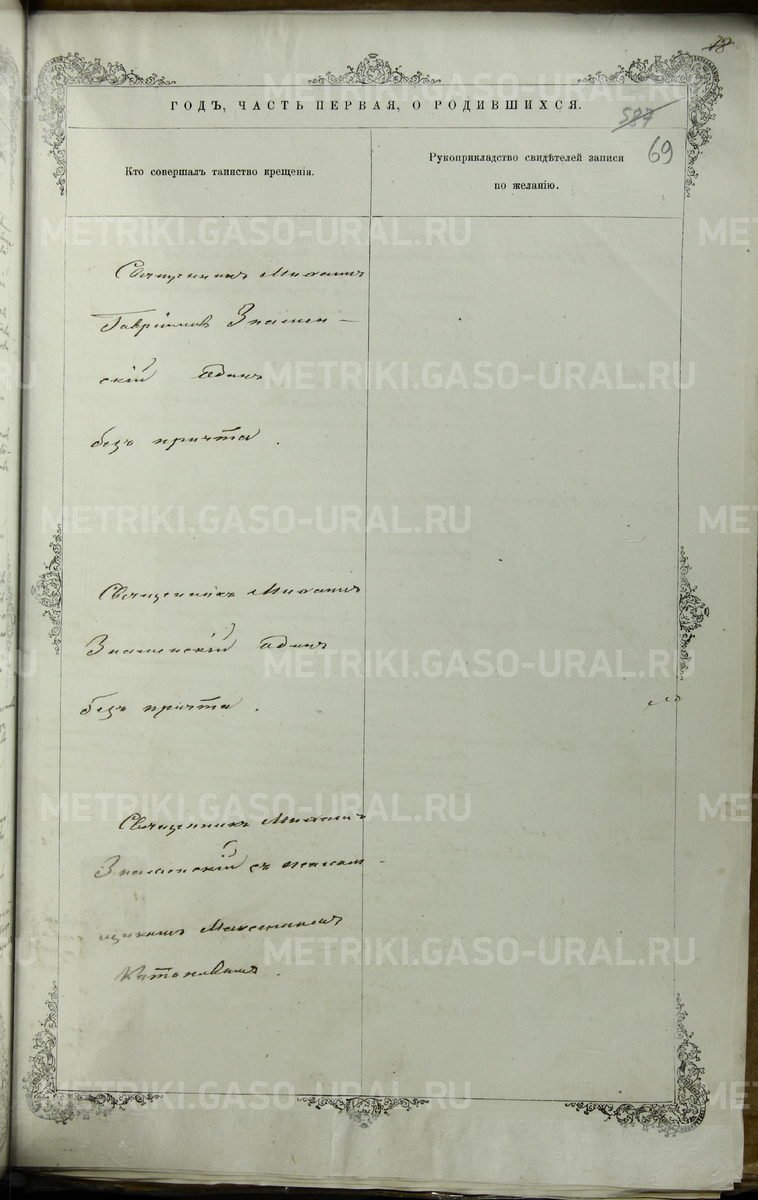 18
ГОДЪ, ЧАСТЬ ПЕРВАЯ, О РОДИВШИХСЯ.
587
69
Кто совершалъ таинство крещенія.
Рукоприкладство свидѣтелей записи
по желанію.
Священникъ Михаилъ
Гавріиловъ Знамен-
скій одинъ
безъ причта.
Священникъ Михаилъ
Знаменскій одинъ
безъ причта.
Священникъ Михаилъ
Знаменскій съ
Катановымъ.
METRIKI.GASO-URAL.RU